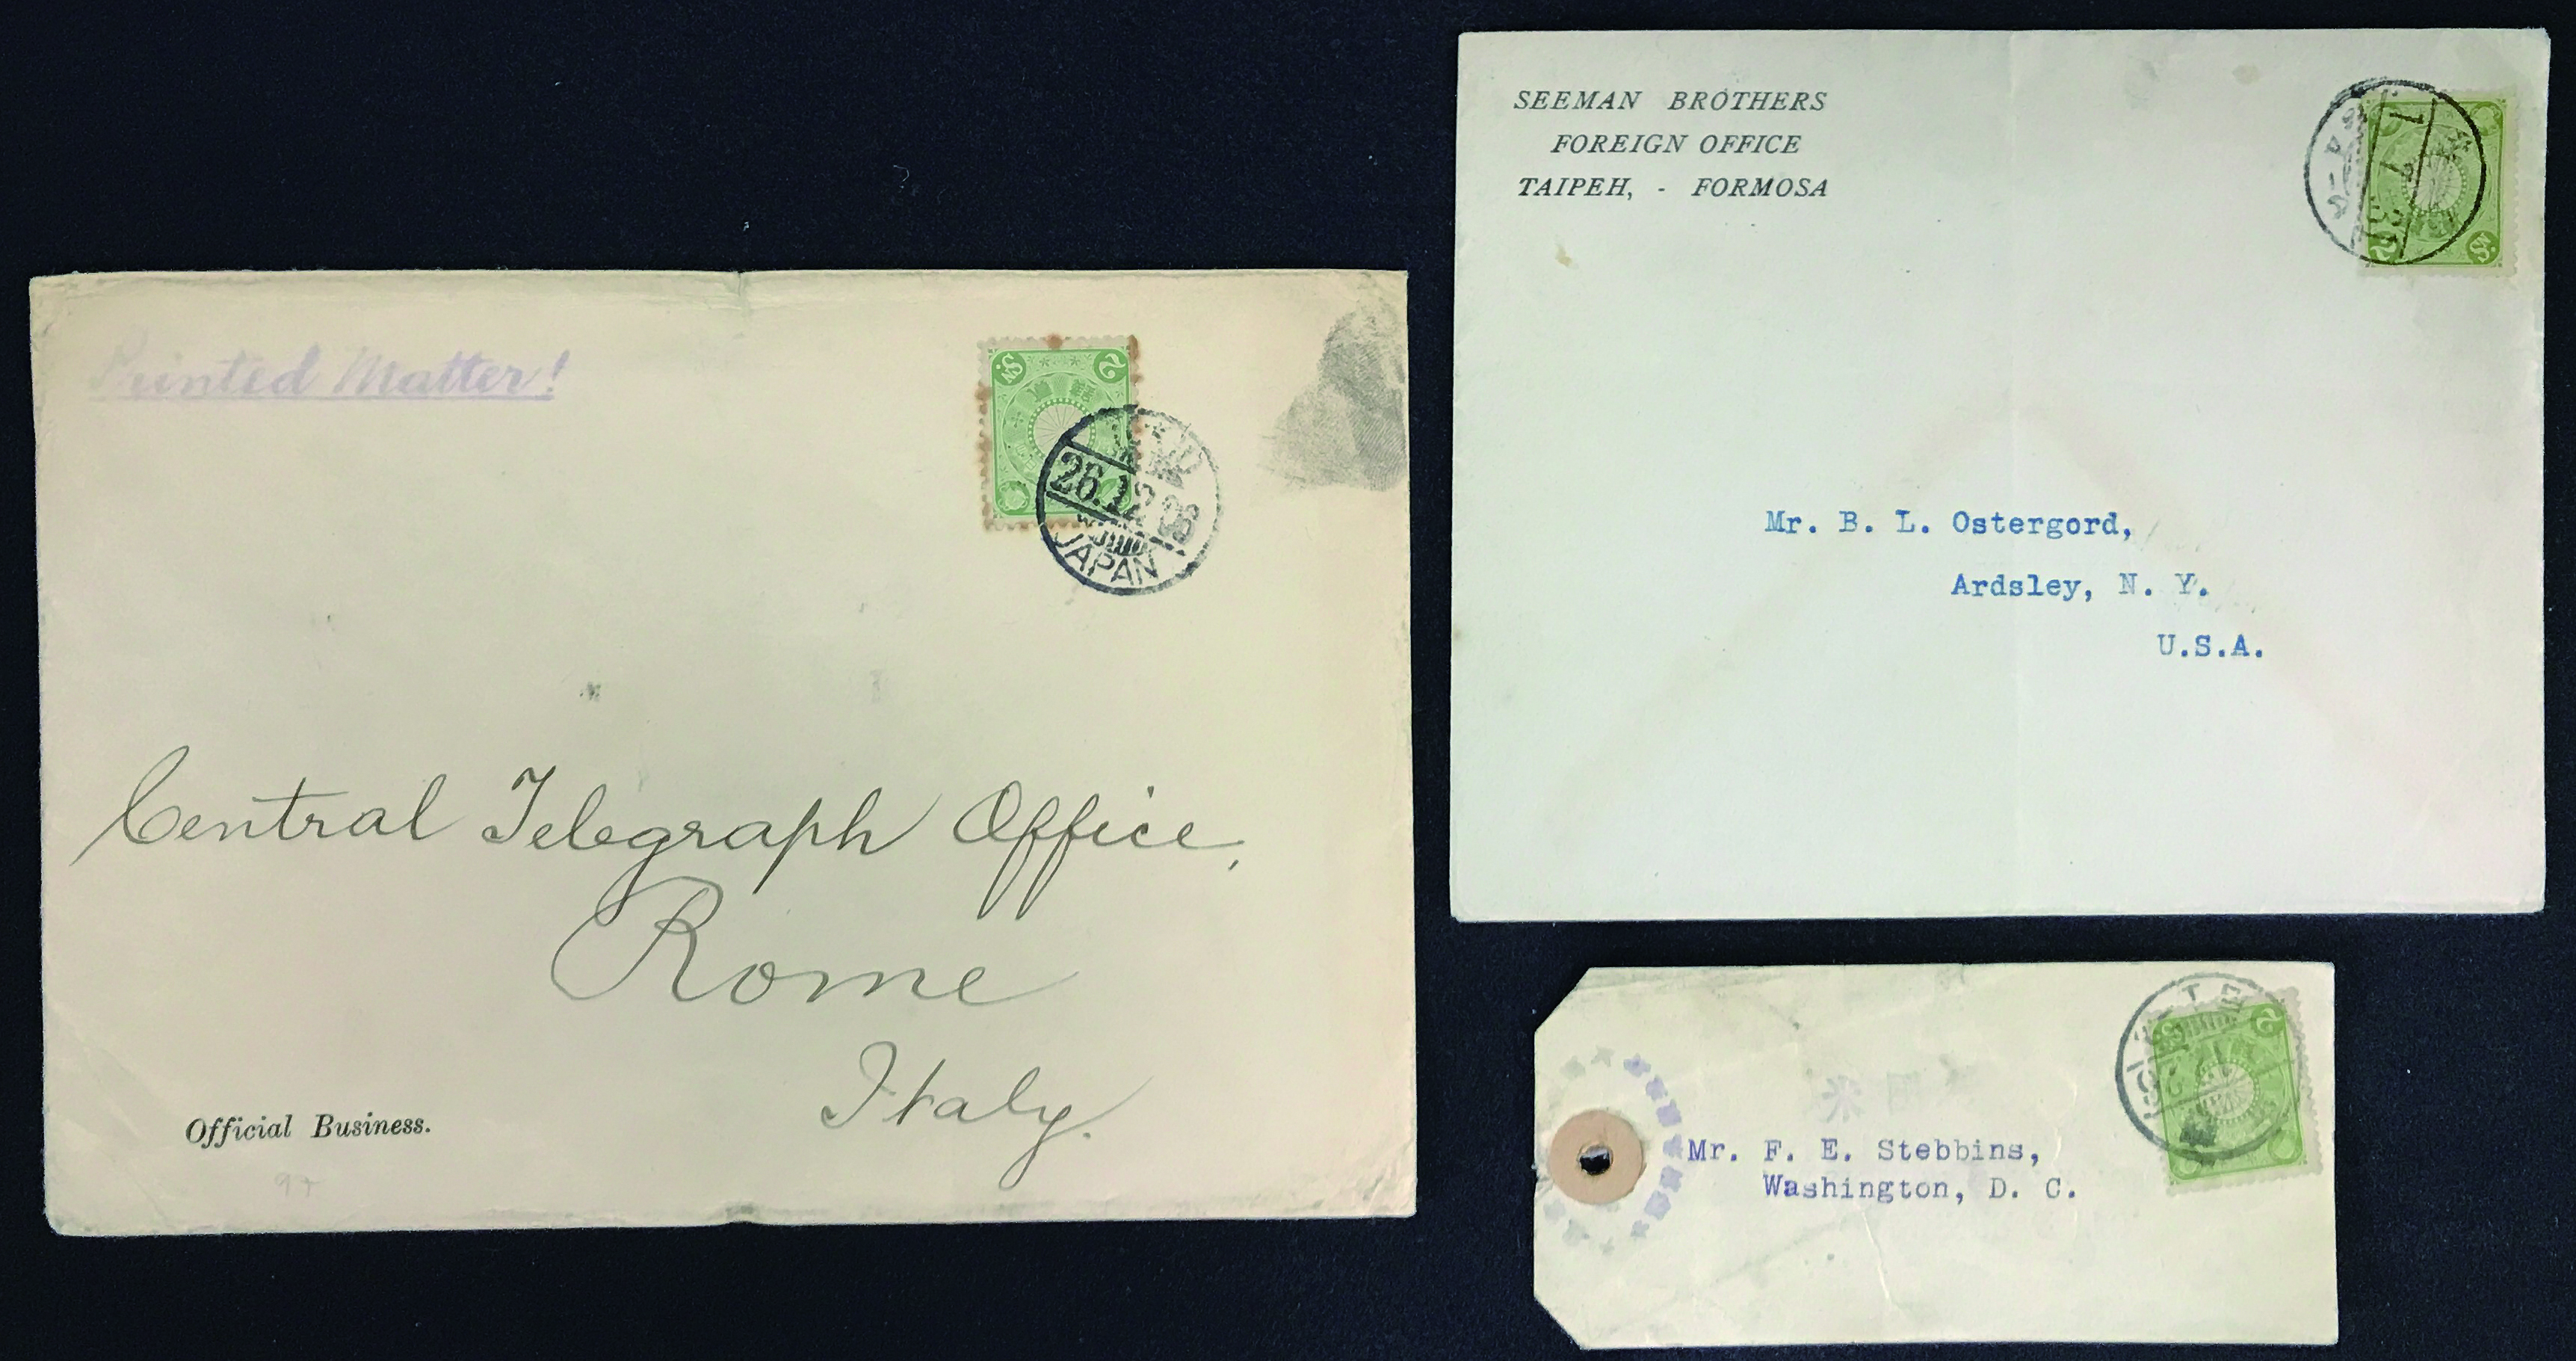 Printed Matter!
2 Sn.
26.12.26
JAPAN
Central Telegraph Office,
Rome
Italy.
Official Business.
SEEMAN BROTHERS
FOREIGN OFFICE
TAIPEH, - FORMOSA
Mr. B. L. Ostergord,
Ardsley, N. Y.
U.S.A.
Mr. F. E. Stebbins,
Washington, D. C.